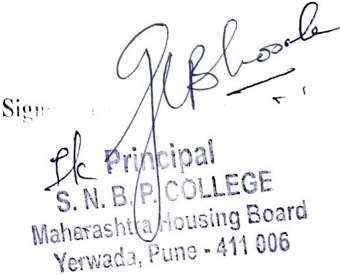 Sign
Principal
S. N. B. P. COLLEGE
Maharashtra Housing Board
Yerwada, Pune - 411 006